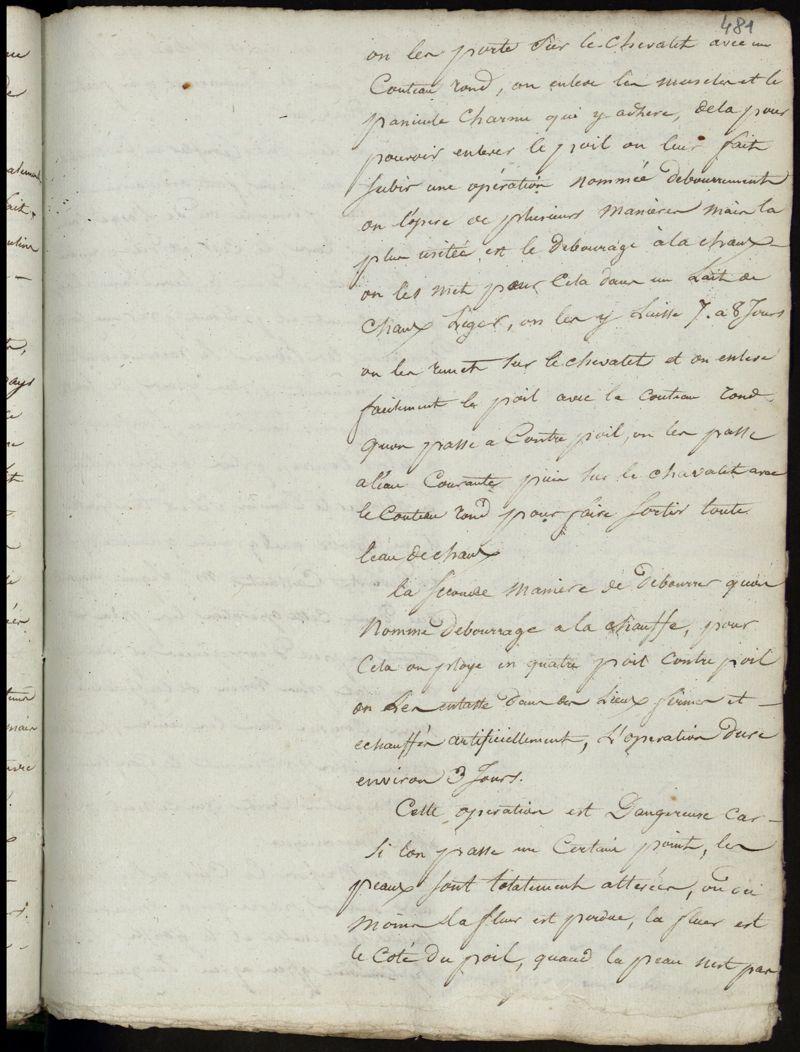 481
on les porte Sur le chevalet avec un
Couteau rond, on enleve les muscles et le
panicule Charnu qui y adhere, dela pour
pouvoir enlever le poil on leur fait
subir une opération nommée debourrement
on l'opere de plusieurs manieres mais la
plus usitée est le debourage à la chaux —
on les met pour Cela dans un Lait de
Chaux Léger, on les y Laisse 7. a 8 Jours
on les remet sur le chevalet et on enleve
facilement le poil avec le couteau rond
quon passe a Contre poil, on les passe
a l'eau Courante puis sur le chevalet avec
le Couteau rond pour faire sortir toute
leau de chaux
la seconde maniere de debourrer qu'on
Nomme debourrage a la chauffe, pour
Cela on ploye en quatre poil contre poil
on Les entasse dans des Lieux fermés et —
echauffés artificiellement, L'operation dure
environ 3 Jours.
Cette operation est Dangereuse Car —
Si lon passe un Certain point, les
peaux sont totalement altérées, ou au
moins la fleur est perdue, la fleur est
le Coté du poil, quand la peau nest pas